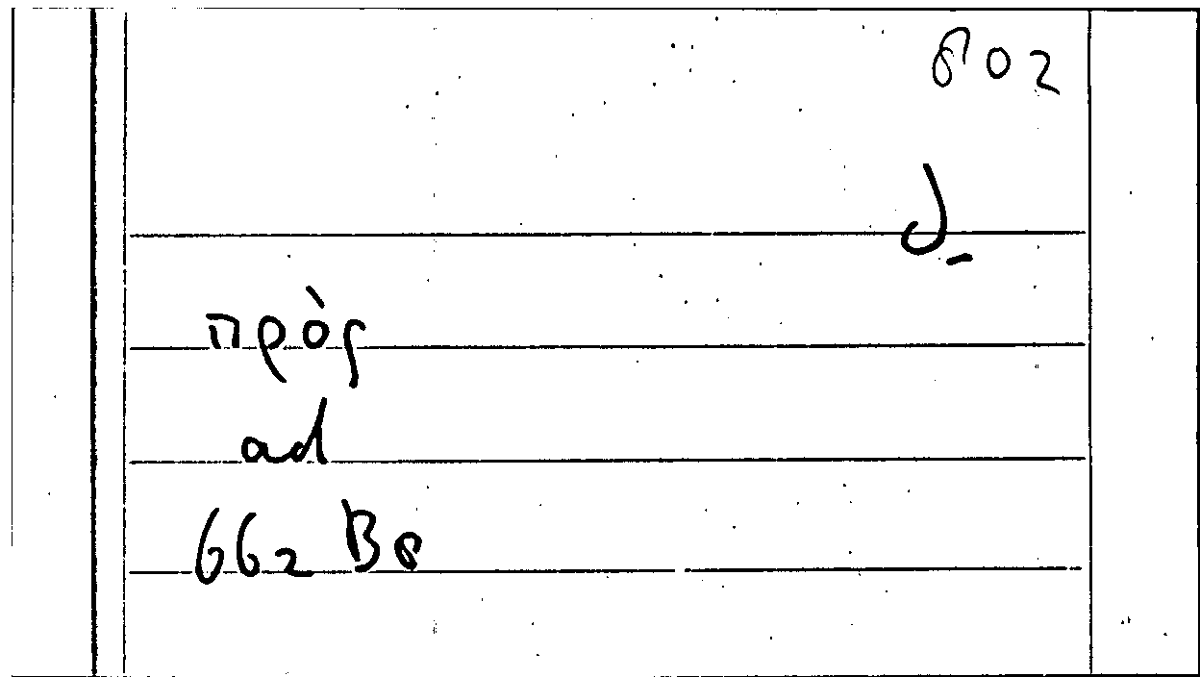 802
d.
πρὸς
ad
662 B8